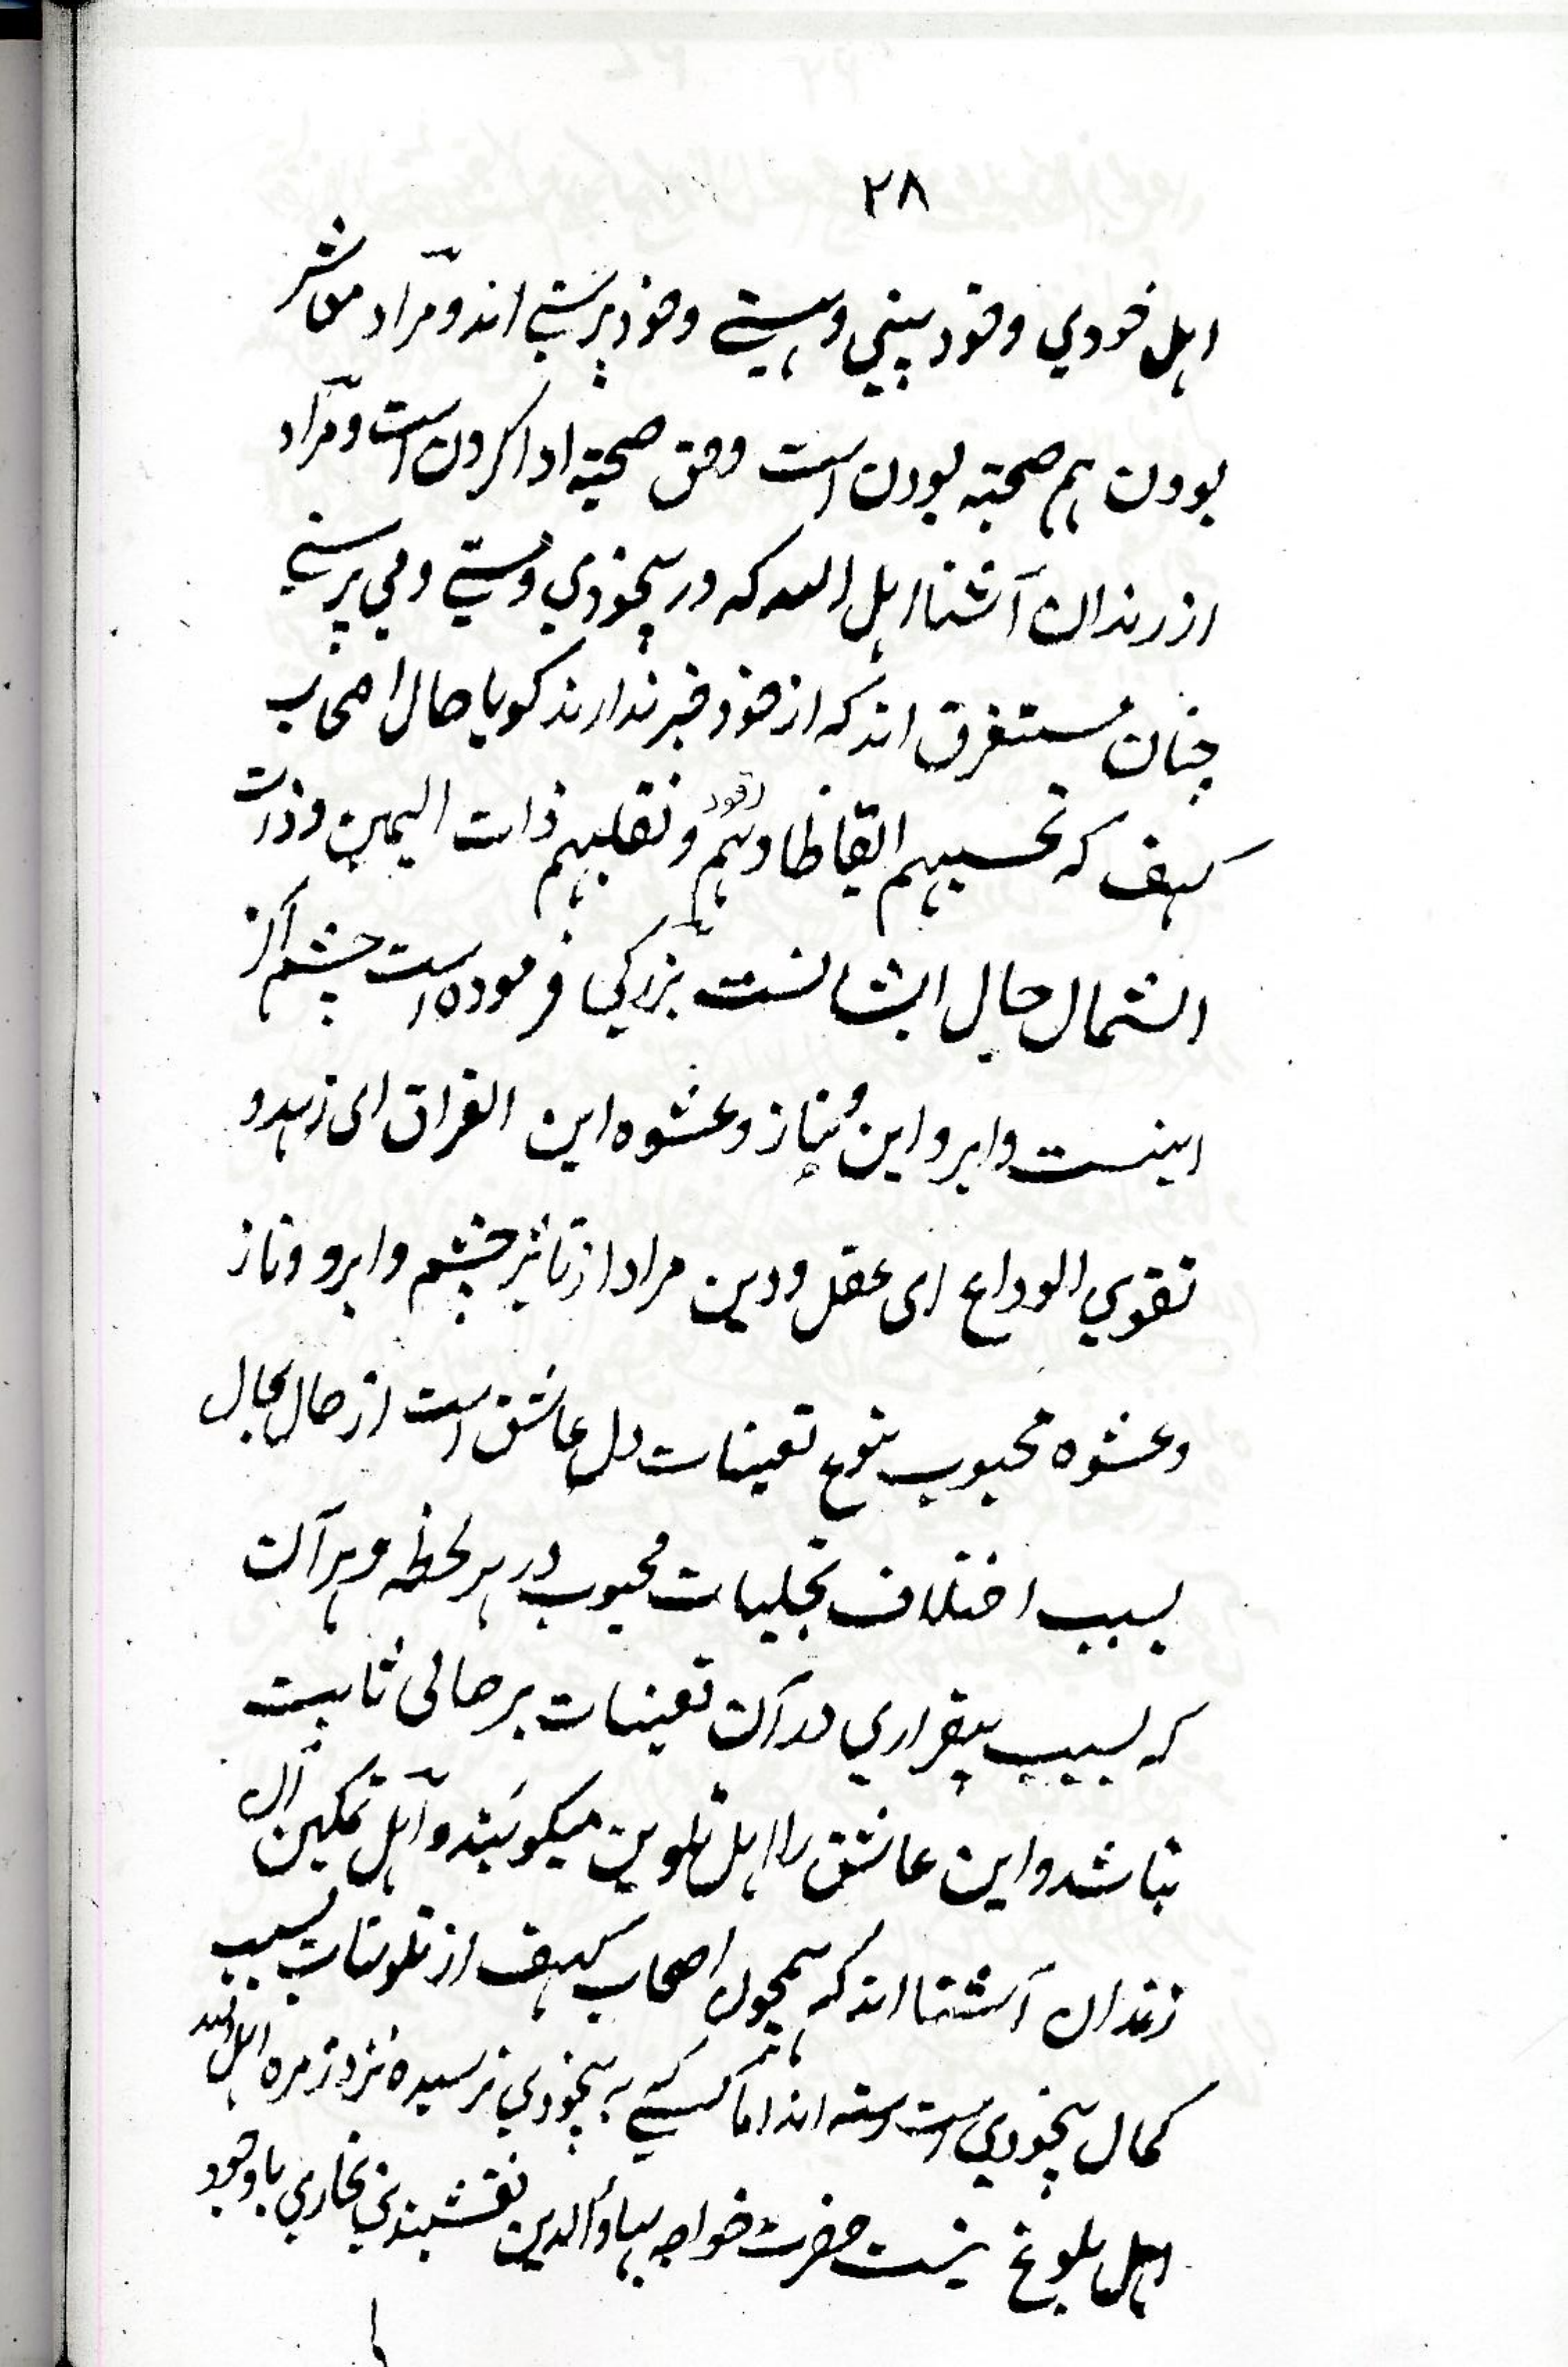 ۲۸
اہل خودي وخود بيني وہستے وخود پرستے اند ومراد معاشر
بودن ہم صحبتہ بودن است وحق صحبتہ ادا کردن است ومراد
از رندان آشنا اہل اللہ کہ در بيخودي ومستے ومي پرستے
چنان مستغرق اند کہ از خود خبر ندارند کويا حال اصحاب
کہف کہ تحسبہم ايقاظا وہم رقود ونقلبہم ذات اليمين وذات
الشمال حال ايشانست بزرکي فرموده است چشم اکر
اينست وابرو اين وناز وعشوه اين الفراق اى زہد و
تقوي الوداع اى عقل ودين مراد از تاثير چشم وابرو وناز
وعشوه محبوب تنوع تعينات دل عاشق است از حال بحال
بسبب اختلاف تجليات محبوب در ہر لحظہ وہر آن
کہ بسبب بيقراري در آن تعينات بر حالى ثابت
نباشد واين عاشق را اہل تلوين ميکويند واہل تمکين آن
رندان آشنا اند کہ ہمچون اصحاب کہف از تلوينات بسبب
کمال بيخودي است رستہ اند اما کسے کہ بہ بيخودي نرسيده نزد زمره اہل اللہ
اہل بلوغ نيست حضرت خواجہ بہاؤالدين نقشبندي بخاري باوجود